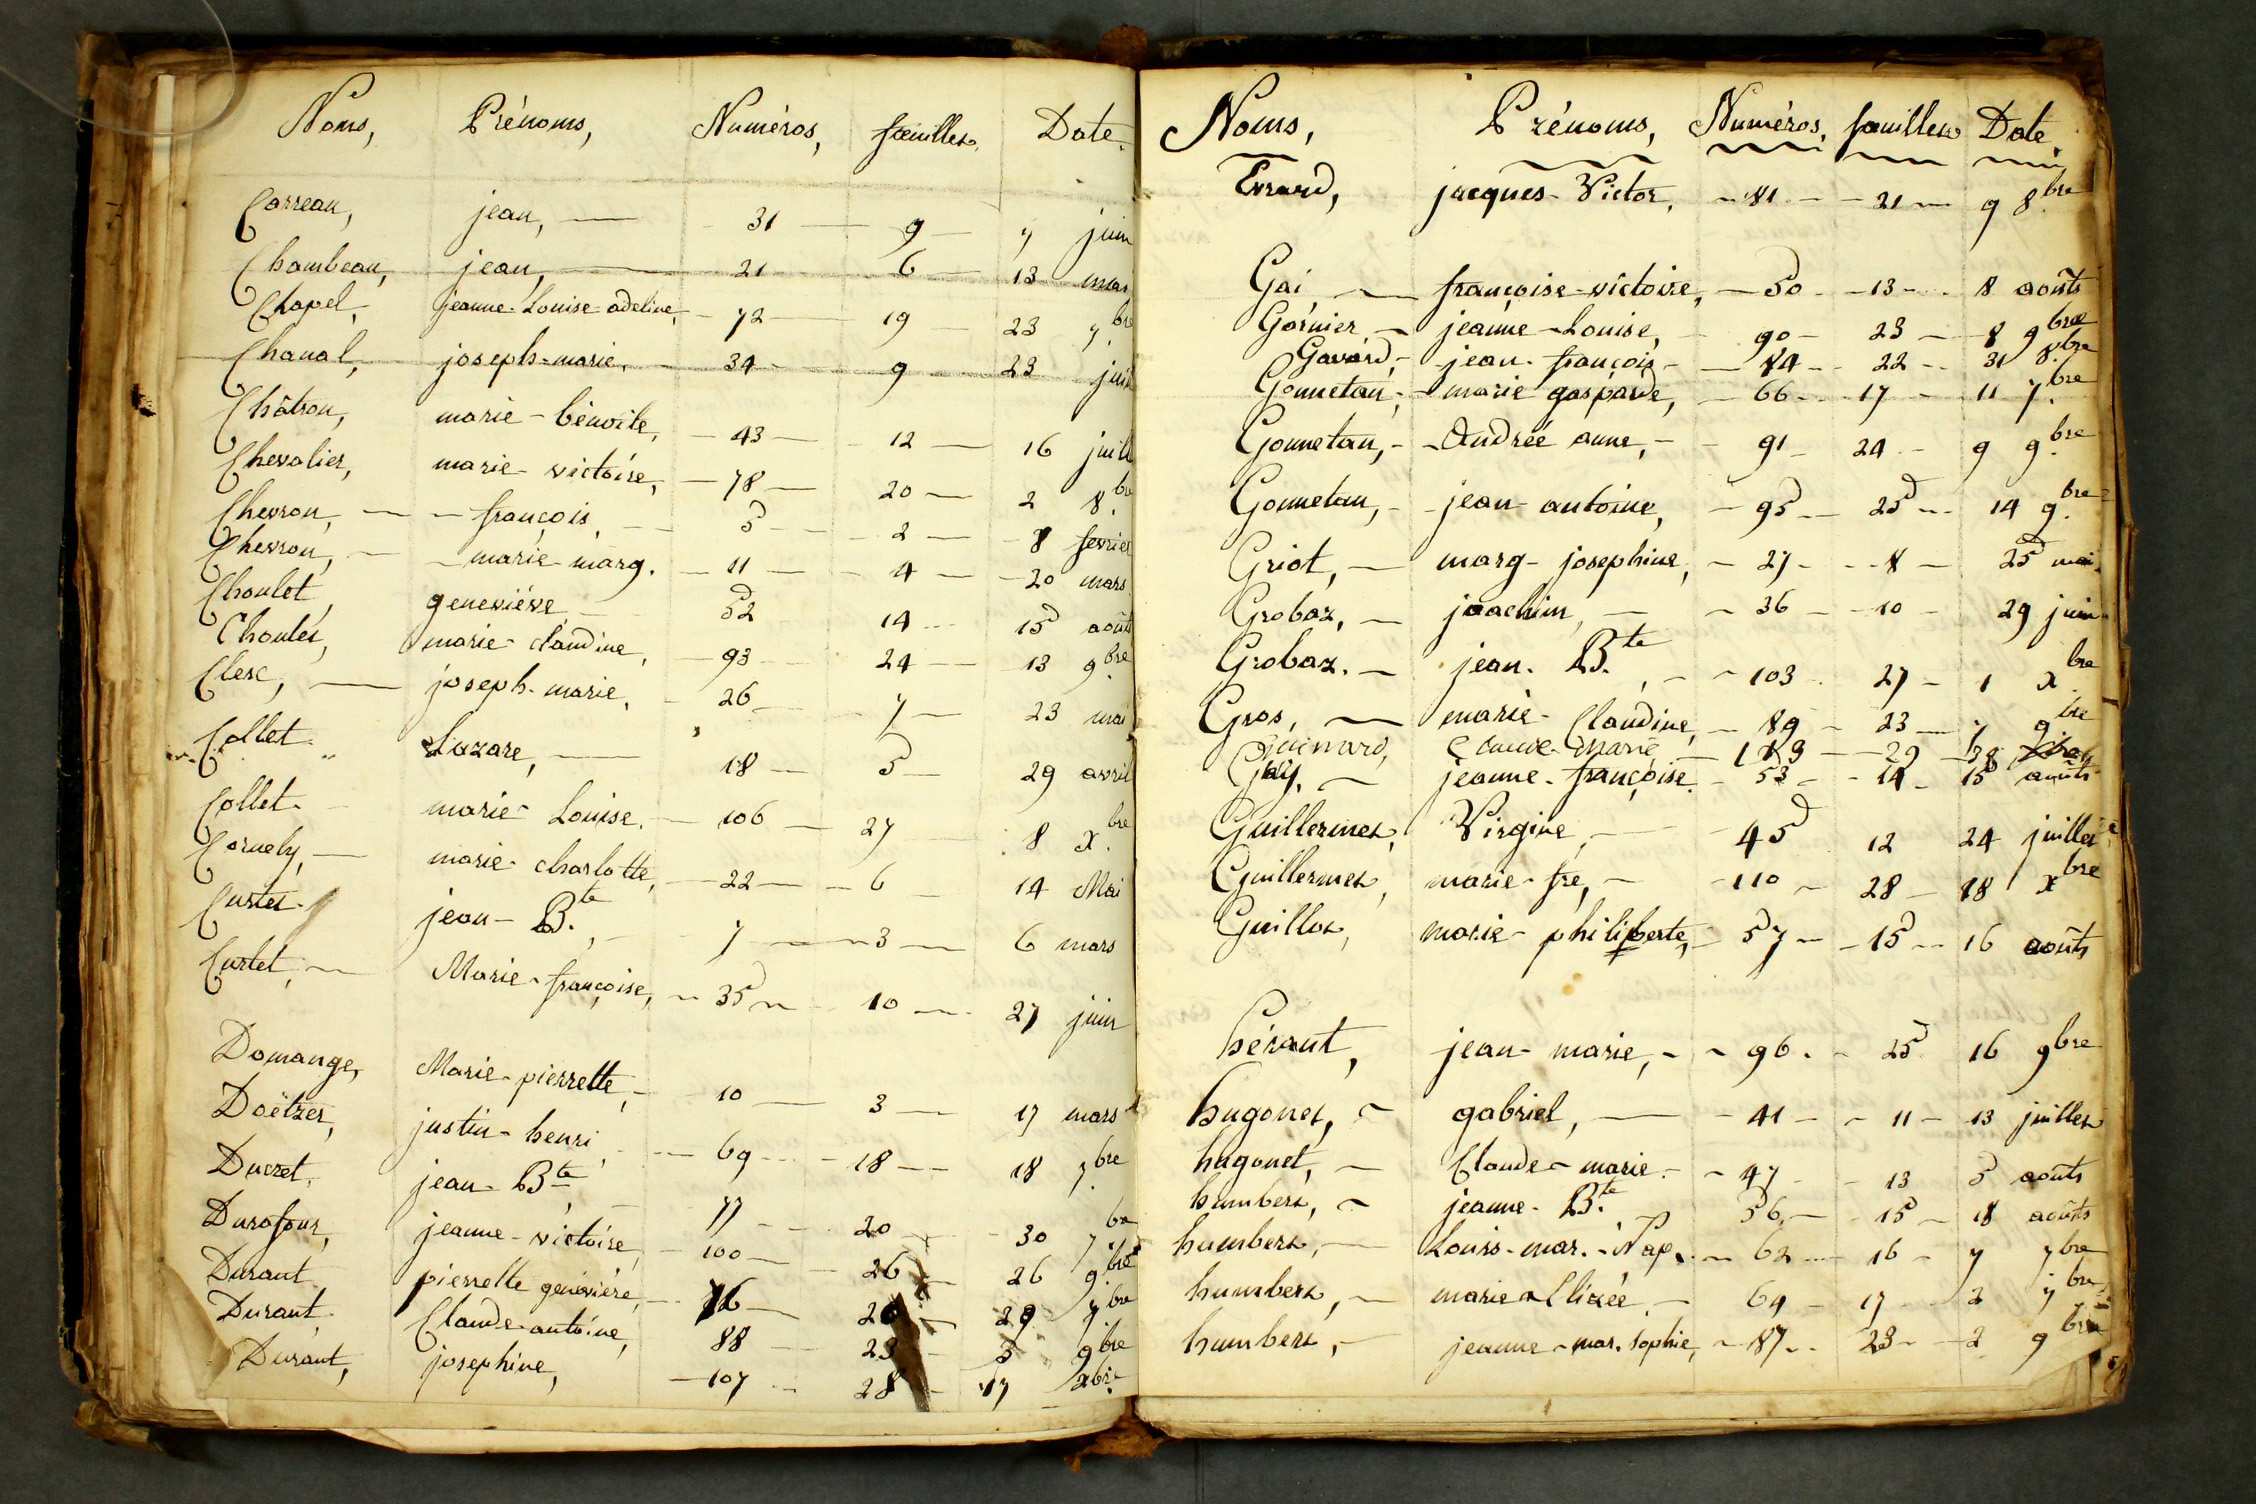 Noms, Prénoms, Numéros, feuilles, Date.
Carreau, jean, 31 9 7 juin
Chambeau, jean, 21 6 13 mai
Chapel, jeanne-Louise-adeline, 72 19 23 7.bre
Chanal, joseph-marie, 34 9 23 juin
Châtron, marie-bénoite, 43 12 16 juill
Chevalier, marie-victoire, 78 20 2 8.bre
Chevron, françois, 5 2 8 fevrier
Chevron, marie marg. 11 4 20 mars
Choulet, geneviéve 52 14 15 août
Choulet, marie-claudine, 93 24 13 9.bre
Clerc, joseph-marie, 26 7 23 mai
Collet Lazare, 18 5 29 avril
Collet marie Louise, 106 27 8 x.bre
Cornely, marie-charlotte, 22 6 14 Mai
Curtet jean-B.te, 7 3 6 mars
Curtet, Marie-françoise, 35 10 27 juin
Domange, Marie-pierrette, 10 3 17 mars
Doëtzer, justin-henri, 69 18 18 7.bre
Ducret, jean-B.te, 77 20 30 7.bre
Durafour, jeanne-victoire, 100 26 26 9.bre
Durant pierrette geneviére, 76 20 29 7.bre
Durant Claude-antoine, 88 23 5 9bre
Durant, josephine, 107 28 17 xbre
Noms, Prénoms, Numéros, feuilles Date.
Errard, jacques-Victor, 81 21 9 8.bre
Gai, françoise-victoire, 50 13 8 août
Garnier, jeanne-Louise, 90 23 8 9bre
Gavard, jean-françois 84 22 31 8.bre
Gonnetan, marie gasparde, 66 17 11 7.bre
Gonnetan, Andrée anne, 91 24 9 9.bre
Gonnetan, jean-antoine, 95 25 14 9.bre
Griot, marg-josephine, 27 8 25 mai.
Grobaz, joachim, 36 10 29 juin
Grobaz. jean. B.te, 103 27 1 x.bre
Gros, marie-Claudine, 89 23 7 9bre
Guinard, Claude-Marie 29
Guy, jeanne-françoise 53 14 15 août
Guillermet, Virgine, 45 12 24 juillet
Guillermet, marie-fre, 110 28 18 xbre
Guillot, marie-philiberte, 57 15 16 août
hérant, jean-marie, 96. 25 16 9bre
hugonet, gabriel, 41 11 13 juillet
hugonet, Claude-marie. 47 13 5 août
humbert, jeanne-B.te 56 15 18 août
humbert, Louis-mar.-Nap. 62 16 7 7bre
humbert, marie Elizée 64 17 2 7bre
humbert, jeanne-mar. sophie, 87 23 2 9bre